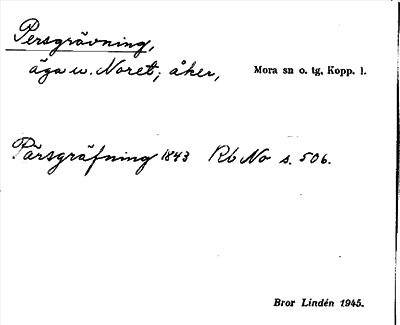 Persgrävning,
äga u. Noret; åker, Mora sn o. tg, Kopp. l.
Pärsgräfning 1843 Rb No s. 506.
Bror Lindén 1945.